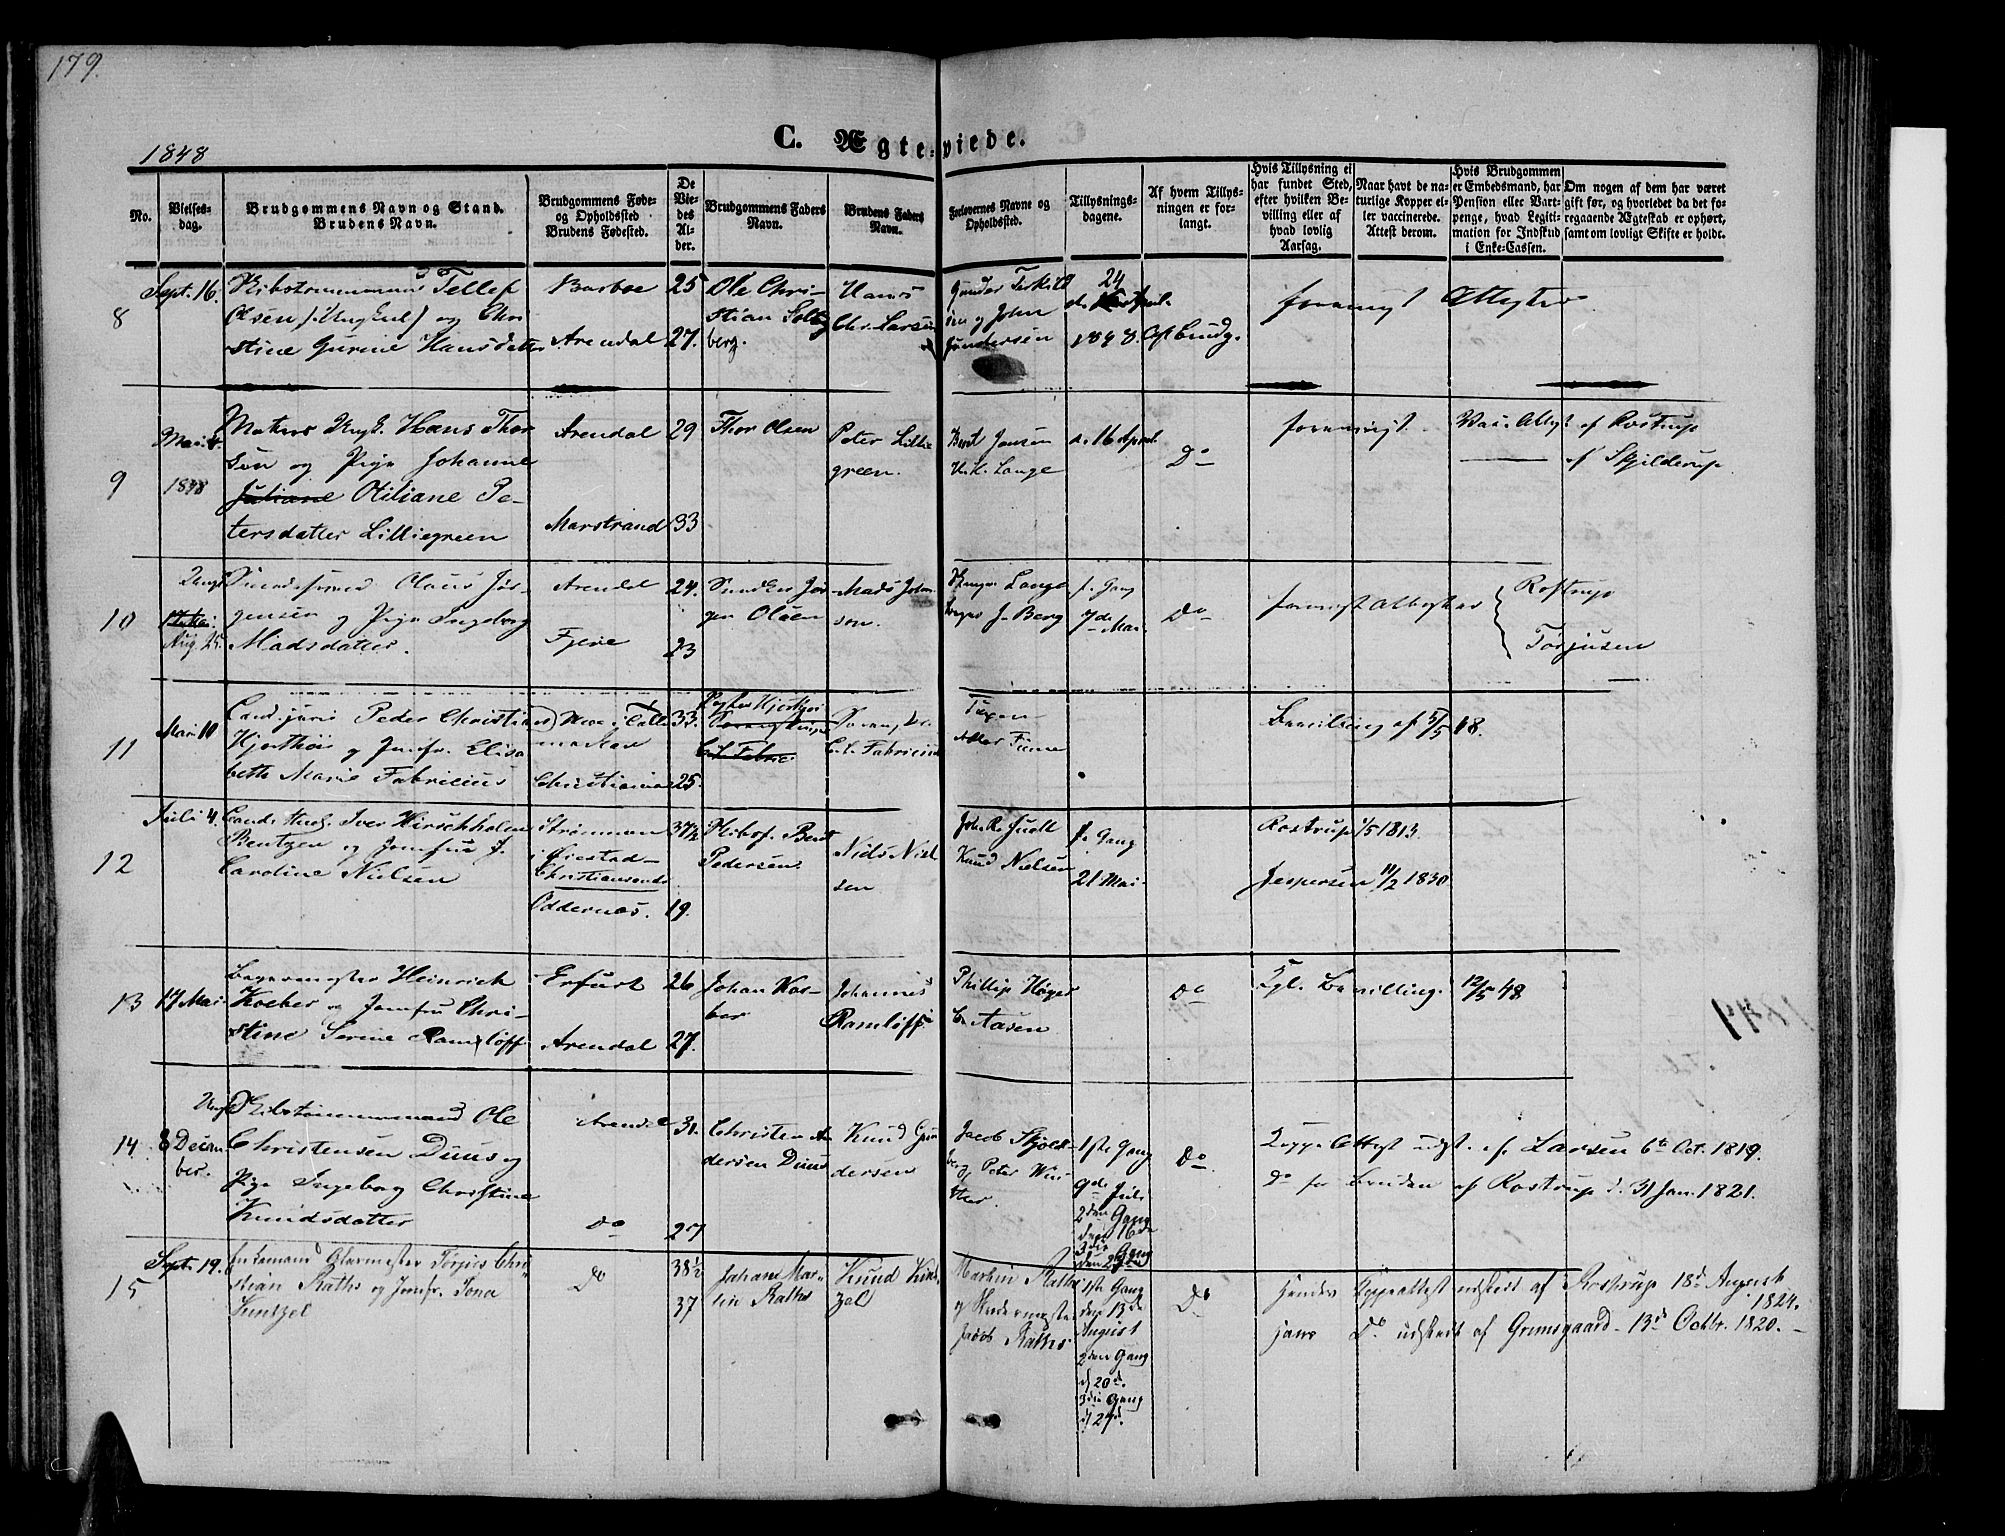 179.
C. Ægteviede.
1848
No.
Vielses-
dag.
Brudgommens Navn og Stand.
Brudens Navn.
Brudgommens Føde-
og Opholdssted
Brudens Fødested.
De
Vie-
des
Al-
der.
Brudgommens Faders
Navn.
Brudens Faders
Navn.
Forlovernes Navne og
Opholdssted.
Tillysnings-
dagene.
Af hvem Tillys-
ningen er for-
langt.
Hvis Tillysning ei
har fundet Sted,
efter hvilken Be-
villing eller af
hvad lovlig
Aarsag.
Naar havt de na-
turlige Kopper el-
ler vaccinerede.
Attest derom.
Hvis Brudgommen
er Embedsmand, har
Pension eller Vart-
penge, hvad Legiti-
mation for Indskud
i Enke-Cassen.
Om nogen af dem har været
gift før, og hvorledet da det fo-
regaaende Ægteskab er ophørt,
samt om lovligt Skifte er holdt.
8
Sept. 16.
Tellef
Olsen (Ungkarl) og Chri
stine Gurine Hansdatter
Barboe
Arendal
25
27.
Ole Chri-
stian Solt
berg.
Hans
Chr. Larsen
Gunder Terkild
sen og John
Gundersen
24
1848.
Af Brudg.
foreviist Attester
9
Mai 4.
1848
Ungk. Hans Thor
sen og Pige Johanne
Juliane Otiliane Pe-
tersdatter Lilliegreen
Arendal
Marstrand
29
33
Thor Olsen
Peter Lillie
green.
Berit Jensen
H. K. Lange
d. 16 April
Do
foreviist.
Vac. Attest af Rostrup
af Skjilderup
10
Ungk.
17 Mai
Aug. 25.
Olaus Jør-
gensen og Pige Ingeborg
Madsdatter.
Arendal
Fjere
24.
23
Jør-
gen Olsen
Mads Johan-
sen.
Lange
J. Berg
1. Gang
7de Mai.
Do
foreviist Attester
Rostrup
Torjusen
11
Mai 10
Cand. juris Peder Christian
Hjorthøi og Jomfr. Elisa
beth Marie Fabricius
Christiania
33.
25.
C. L. Fabricius
Bevilling af 5/5 48.
12
Juli 4.
Cand. theol. Iver Hirschholm
Bentzen og Jomfru J.
Caroline Nielsen
Strømmen
i Øiestad
Christiansand
Oddernæs.
37½
19.
Skibsf. Bent
Pedersen.
Niels Niel
sen
John R. Juell
Knud Nielsen
1. Gang
21 Mai
Rostrup 1/5 1813.
Jespersen 11/2 1830
13
17 Mai
Bagermester Heinrich
Koeber og Jomfru Chri-
stine Serine Ramsløff
Erfurt
Arendal
26
27.
Johan Koe-
ber
Johannes
Ramsløff
Phillip Høyer
C. Aasen
Do
Kgl. Bevilling. 12/5 48
14
8 Decem
ber.
Ungk. Skibstømmermand Ole
Christensen Duus og
Pige Ingeborg Christine
Knudsdatter
Arendal
Do
31.
27
Christen An
dersen Duus
Knud Gun
dersen
Jacob Skjold-
berg, Peter Win
ther.
1ste Gang
9de Juli
2den Gang
den 16de
3die Gang
den 23de
Do
Koppe Attest udst. af Larsen 6te Oct. 1819.
Do for Bruden af Rostrup d. 31 Jan. 1821.
15
Sept. 19.
Enkemand Glarmester Torjus Chri-
stian Raths og Jomfr. Tona
Kintzel
Do
38½
37
Johan Mar-
tin Raths
Knud Kint-
zel
Martin Raths
og Maadermester
Jacob Raths
1ste Gang
den 13de
August
2den Gang
d 20d.
3die Gang
d 27d.
Do
Hendes Koppeattest udstedt af Rostrup 18d August
1824.
hans Do udstedt af Grimsgaard 13d Octbr. 1820.